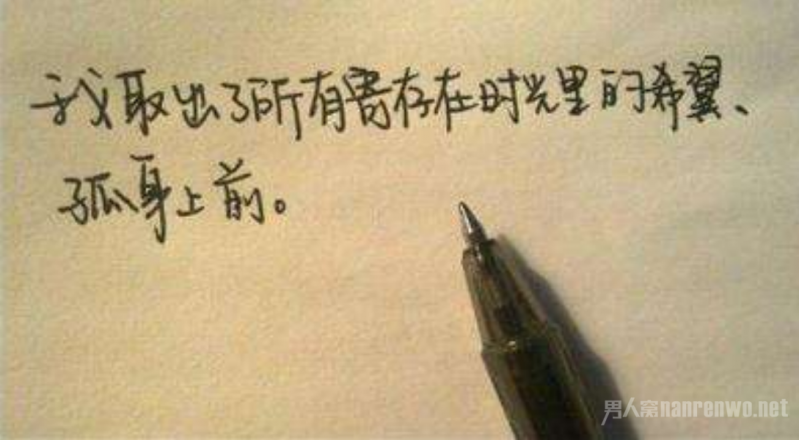 我取出了所有寄存在时光里的希翼、
孤身上前。
男人窝nanrenwo.net